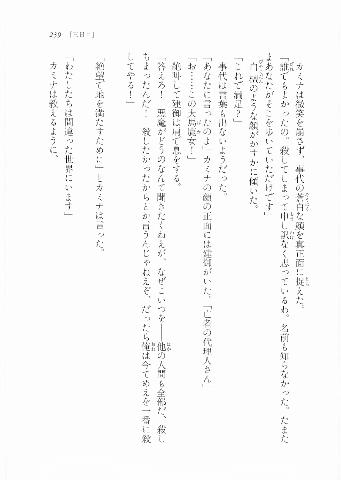 259 [三日目]
カミナは微笑を崩さず、事代の蒼白な顔を真正面に捉えた。
「誰でもよかったの。殺してしまって申し訳なく思っているわ。名前も知らなかった。たまた
まあなたがそこを歩いていただけです」
白磁のような顔がかすかに傾いた。
「これで満足？」
事代は言葉も出ないようだった。
「あなたに言ったのよ」カミナの顔の正面には建御がいた。「亡者の代理人さん」
「お……この大馬鹿女！」
絶叫して建御は肩で息をする。
「答えろ！　悪魔がどうのなんて聞きたくねえが、なぜこいつを――他の人間も全部だ、殺し
ちまったんだ！　殺したかったからとか言うんじゃねえぞ、だったら俺は今てめえを一番に殺
してやる！」
「絶望で地を満たすために」とカミナは言った。
「わたしたちは間違った世界にいます」
カミナは教えるように、